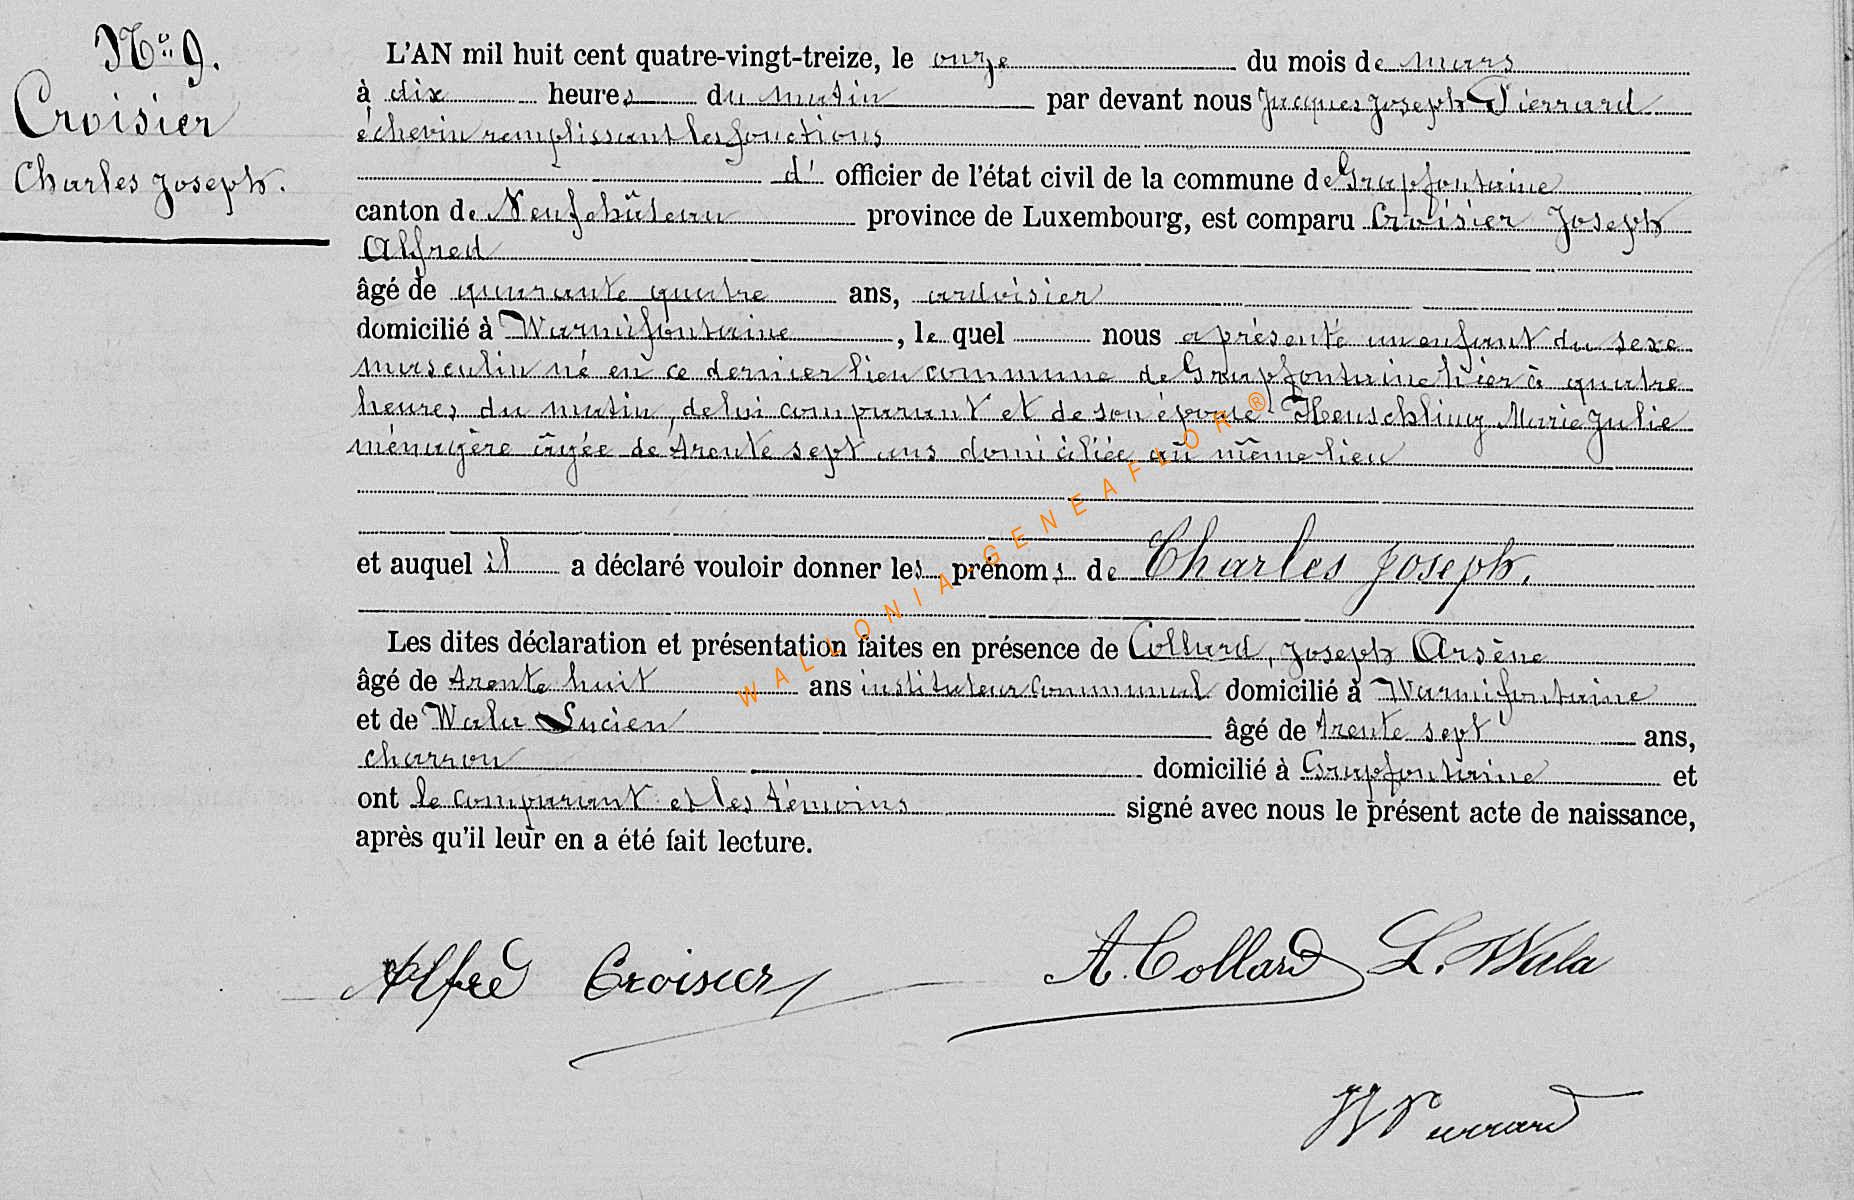 N° 9.
Croisier
Charles Joseph.
L'AN mil huit cent quatre-vingt-treize, le onze du mois de mars
à dix heures du matin par devant nous Jacques Joseph Pierrard
échevin remplissant les fonctions
d' officier de l'état civil de la commune de Grapfontaine
canton de Neufchâteau province de Luxembourg, est comparu Croisier Joseph
Alfred
âgé de quarante quatre ans, ardoisier
domicilié à Warmifontaine, le quel nous a présenté un enfant du sexe
masculin né en ce dernier lieu commune de Grapfontaine hier à quatre
heures du matin, de lui comparant et de son épouse Heuschling Marie Julie
ménagère âgée de trente sept ans domiciliée au même lieu
et auquel il a déclaré vouloir donner les prénoms de Charles Joseph.
Les dites déclaration et présentation faites en présence de Collard, Joseph Arsène
âgé de trente huit ans instituteur communal domicilié à Warmifontaine
et de Wala Lucien âgé de trente sept ans,
charron domicilié à Grapfontaine et
ont le comparant et les témoins signé avec nous le présent acte de naissance,
après qu'il leur en a été fait lecture.
Alfred Croisier A. Collard L. Wala
JJ Pierrard
WALLONIA-GENEAFLOR®